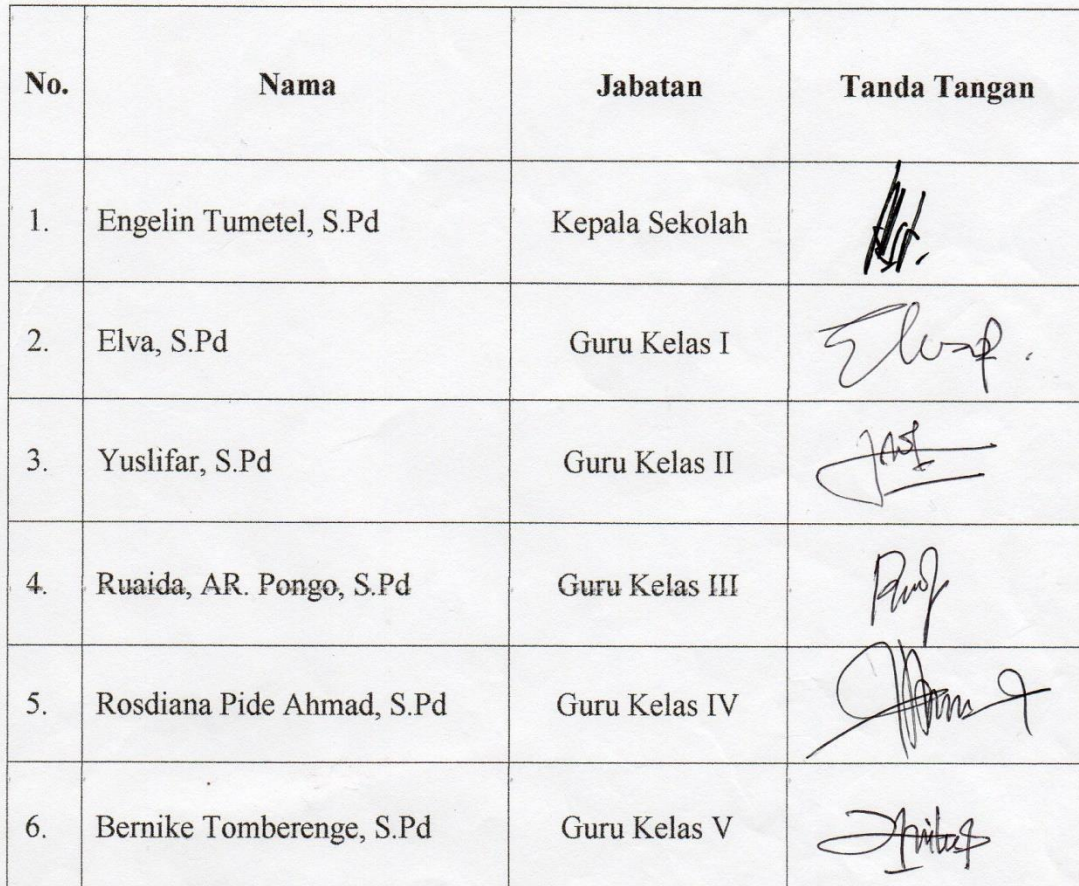 No. Nama Jabatan Tanda Tangan
1. Engelin Tumetel, S.Pd Kepala Sekolah
2. Elva, S.Pd Guru Kelas I
3. Yuslifar, S.Pd Guru Kelas II
4. Ruaida, AR. Pongo, S.Pd Guru Kelas III
5. Rosdiana Pide Ahmad, S.Pd Guru Kelas IV
6. Bernike Tomberenge, S.Pd Guru Kelas V